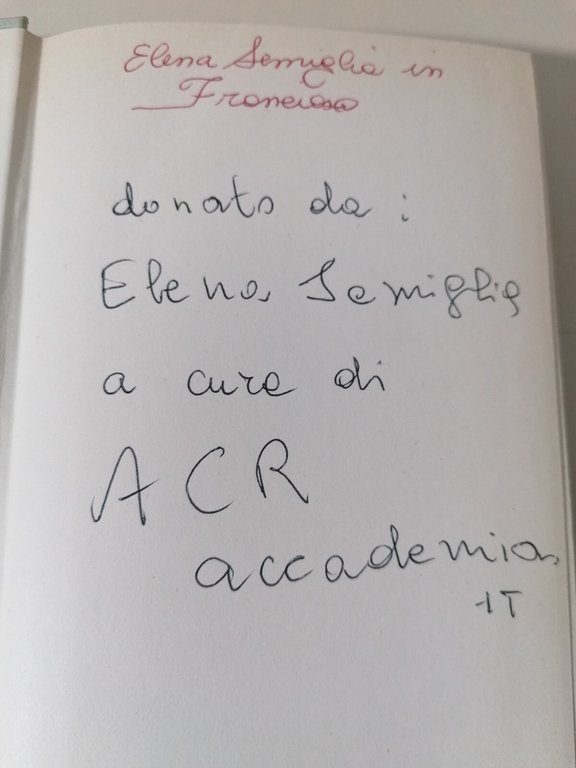 Elena Semiglia in
Franciosa
donato da :
Elena Semiglia
a cura di
ACR
accademia.
IT